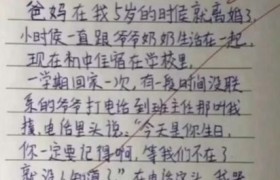 爸妈在我5岁的时候就离婚了,
小时候一直跟爷爷奶奶生活在一起,
现在初中住宿在学校里,
一学期回家一次,有一段时间没联
系的爷爷打电话到班主任那叫我
接,电话里头说:“今天是你生日,
你一定要记得啊,等我们不在了
就没人知道了”在电话这头,我